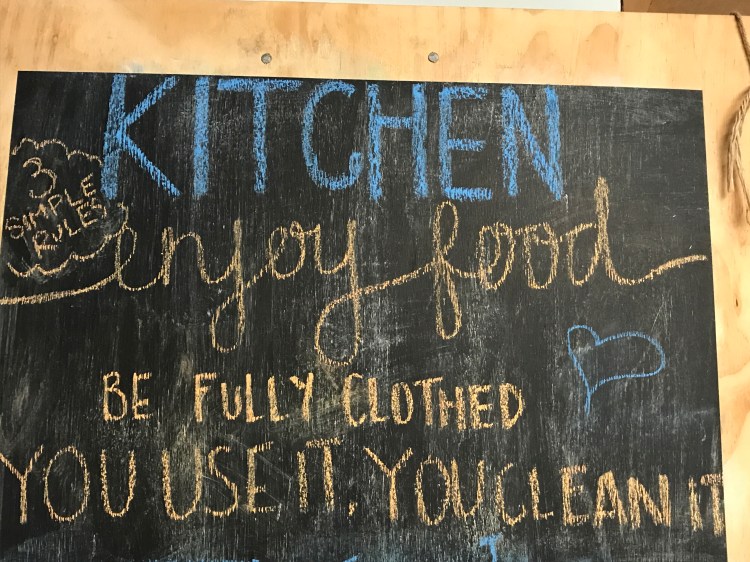 KITCHEN
3
SIMPLE
RULES
enjoy food
BE FULLY CLOTHED
YOU USE IT, YOU CLEAN IT